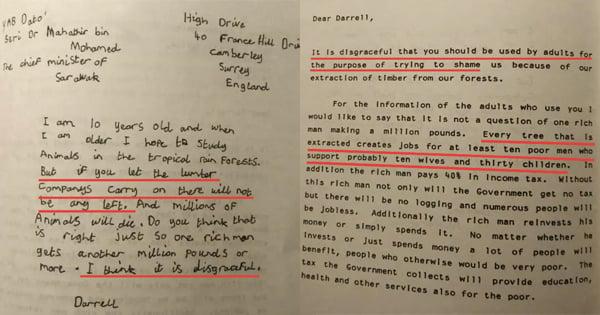 YAB Dato'
Seri Dr Mahathir bin
Mohamed
The chief minister of
Sarawak
High Drive
40 France Hill Dri
Camberley
Surrey
England
I am 10 years old and when
I am older I hope to study
Animals in the tropical rain Forests.
But if you let the lumtar
Companys Carry on there will not
be any left. And millions of
Animals will die. Do you think that
is right just so one rich man
gets another million pounds or
more. I think it is disgraceful.
Darrell
Dear Darrell,
It is disgraceful that you should be used by adults for
the purpose of trying to shame us because of our
extraction of timber from our forests.
For the information of the adults who use you I
would like to say that it is not a question of one rich
man making a million pounds. Every tree that is
extracted creates jobs for at least ten poor men who
support probably ten wives and thirty children. In
addition the rich man pays 40% in income tax. Without
this rich man not only will the Government get no tax
but there will be no logging and numerous people will
be jobless. Additionally the rich man reinvests his
money or simply spends it. No matter whether he
invests or just spends money a lot of people will
benefit, people who otherwise would be very poor. The
tax the Government collects will provide education,
health and other services also for the poor.